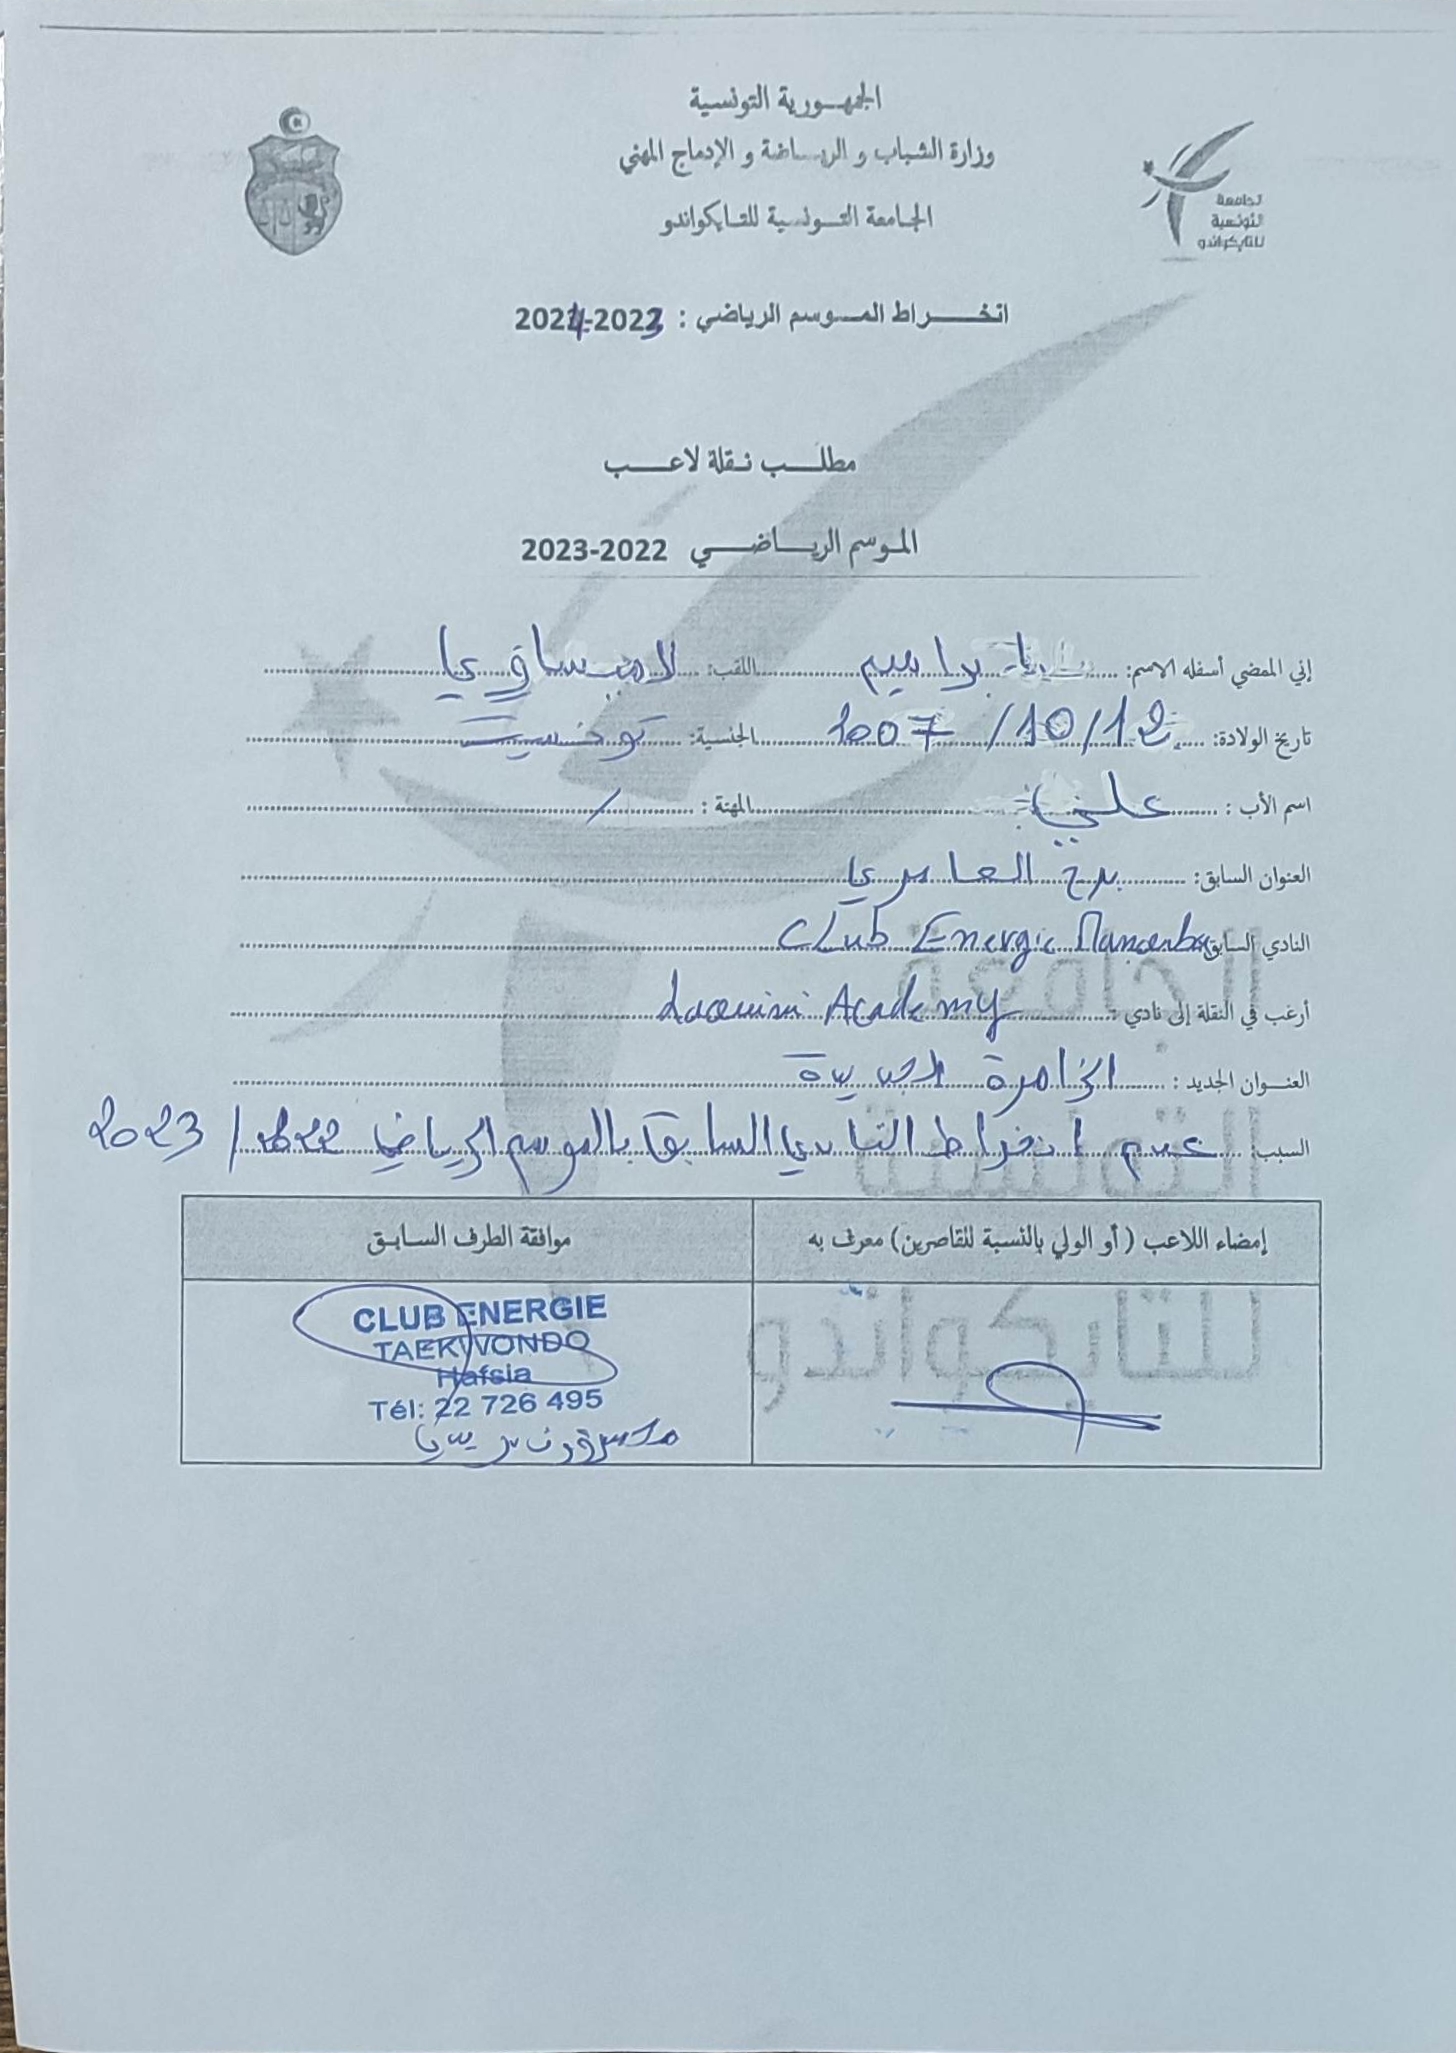 الجمهورية التونسية
وزارة الشباب و الرياضة و الإدماج المهني
الجامعة التونسية للتايكواندو
الجامعة
التونسية
للتايكواندو
انخراط الموسم الرياضي : 2023-2024
مطلب نقلة لاعب
الموسم الرياضي 2022-2023
إني الممضي أسفله الاسم: براهيم اللقب:
تاريخ الولادة: 12/10/2007 الجنسية: تونسية
اسم الأب : علي المهنة : /
العنوان السابق: برج العامري
النادي السابق Club Energie
أرغب في النقلة إلى نادي : Academy
العنوان الجديد :
السبب: عدم انخراط النادي السابق بالموسم الرياضي 2022/2023
إمضاء اللاعب ( أو الولي بالنسبة للقاصرين) معرف به
موافقة الطرف السابق
CLUB ENERGIE
TAEKWONDO
Hafsia
Tél: 22 726 495
الجامعة
التونسية
للتايكواندو